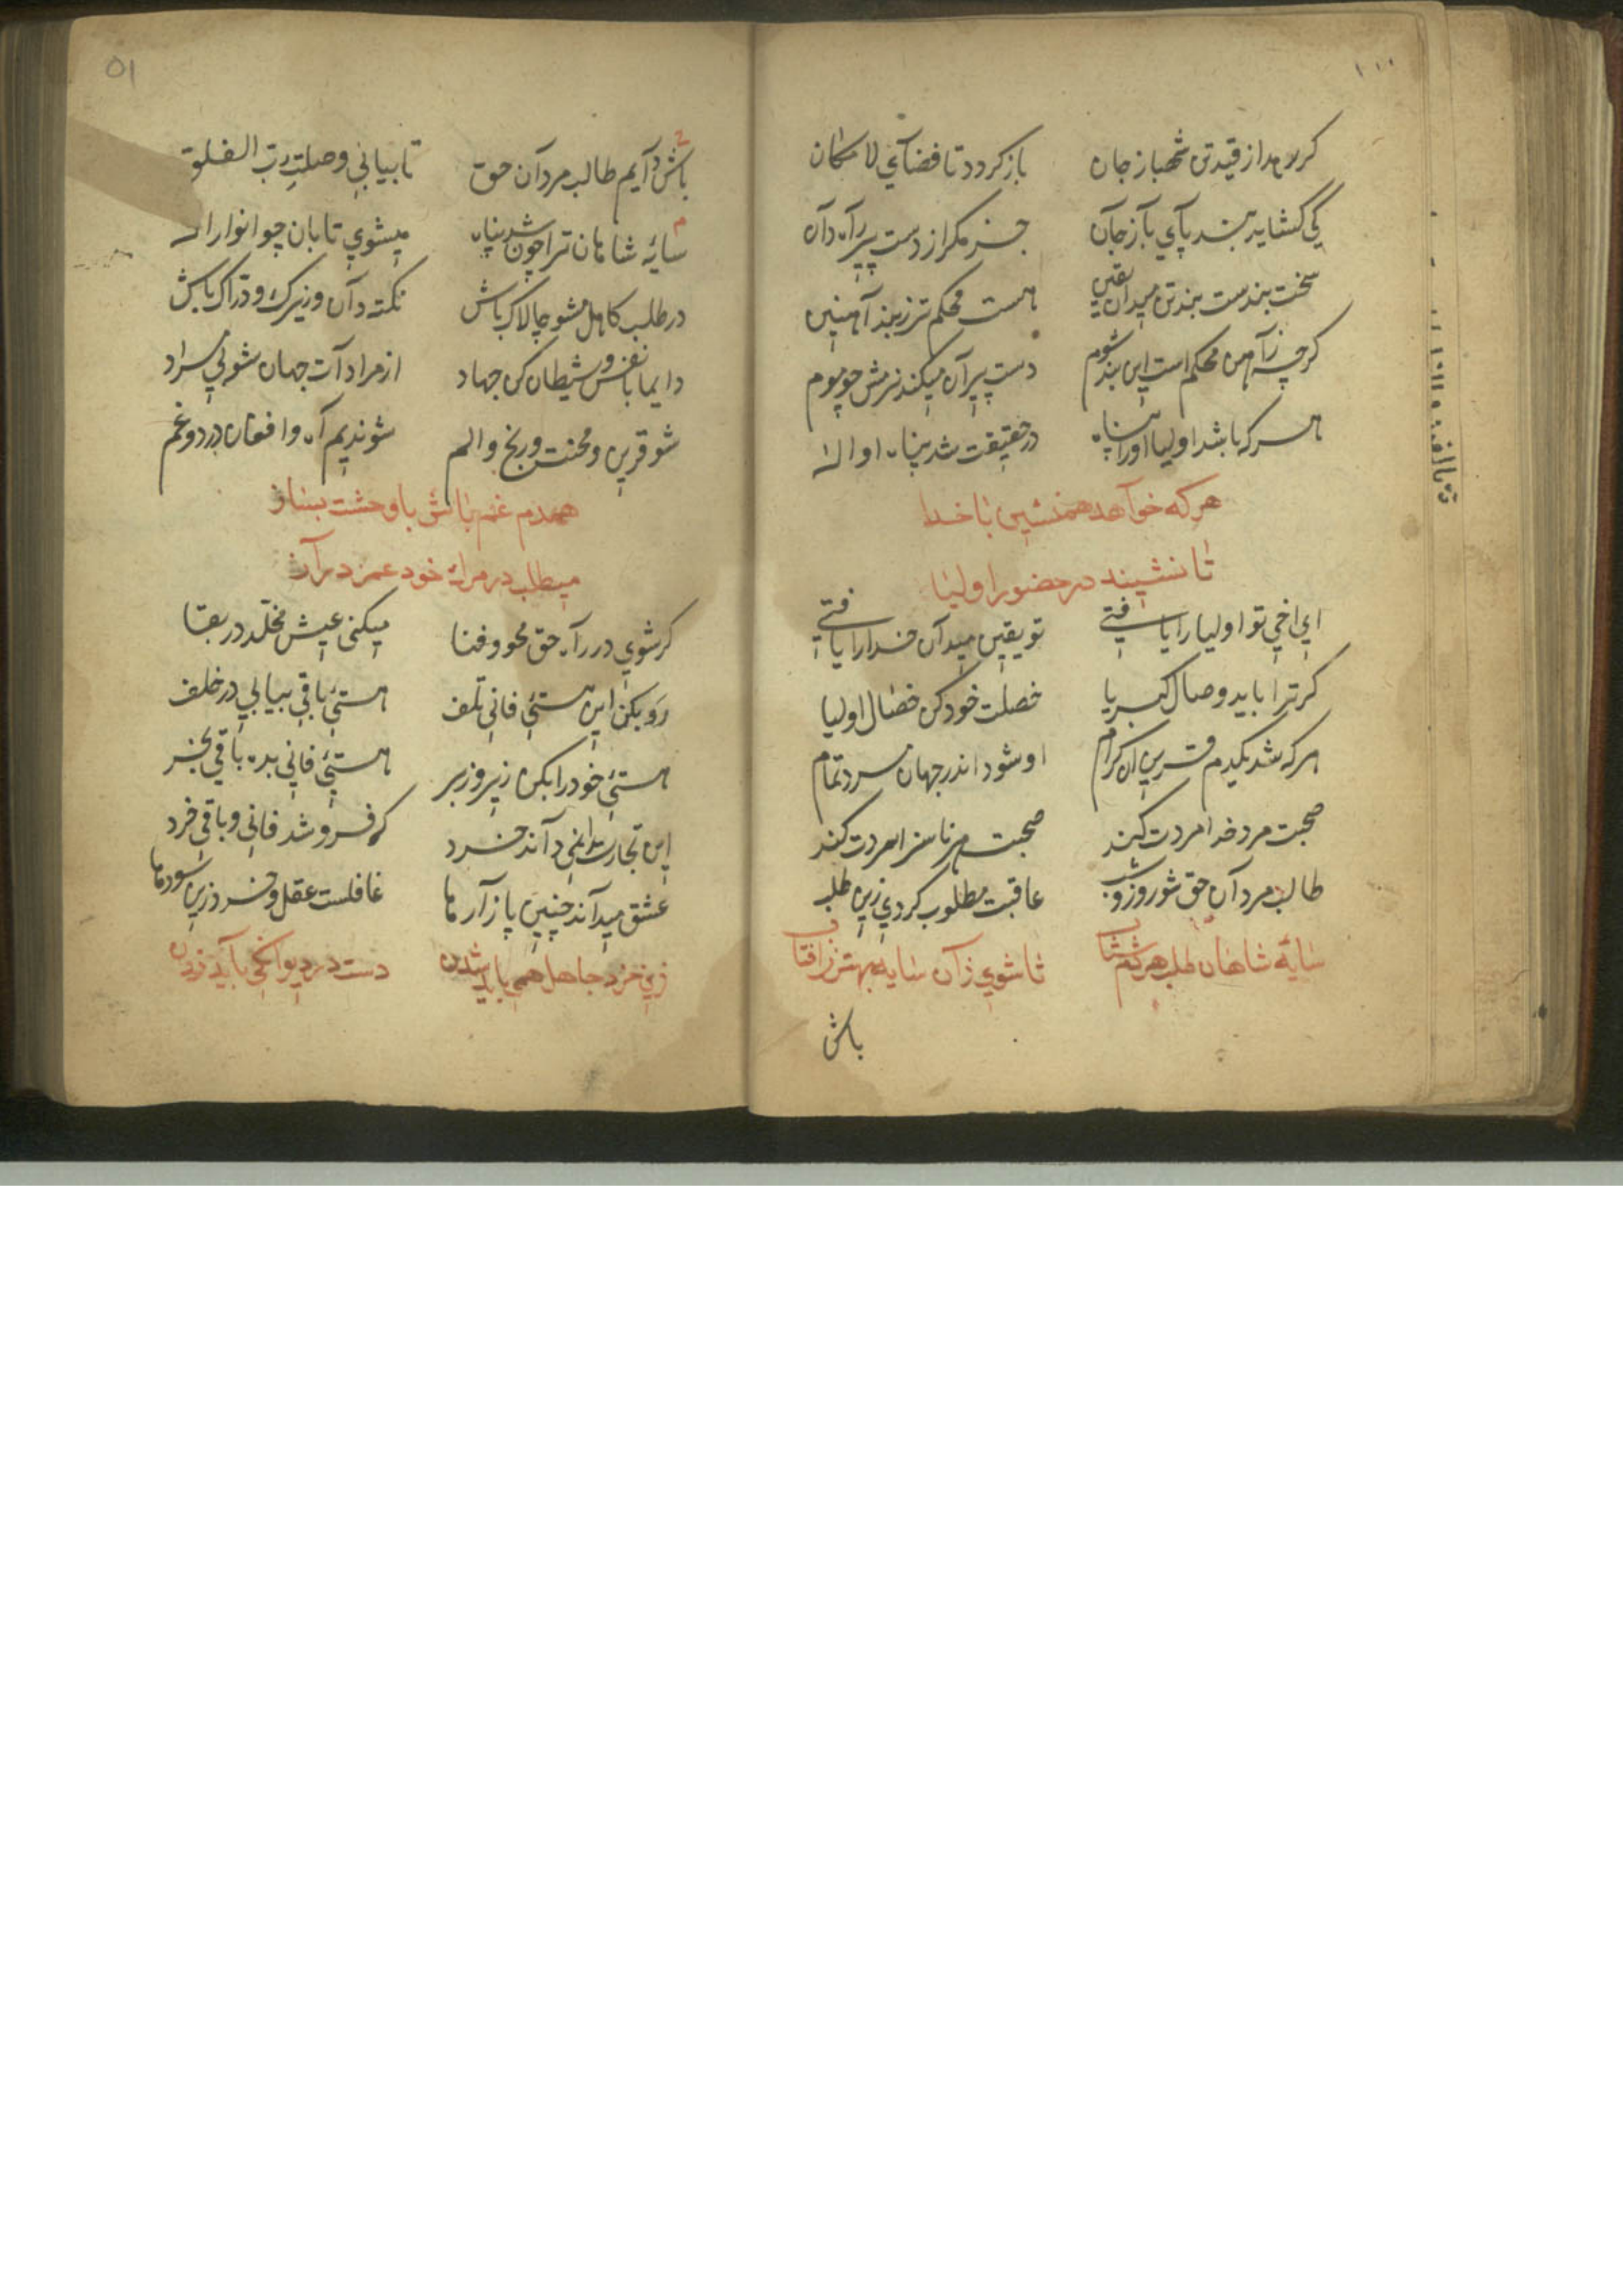 ۱۰۰
کر رهد از قید تن شهباز جان باز کردد تا فضآی لا مکان
کی کشاید بند پآی بآز جآن جز مکر از دست پیر رآه دآن
سخت بندست بند تن میدآن یقین هست محکم تر ز بند آهنین
کرچه ز آهن محکم است این بند شوم دست پیرآن میکند نرمش چو موم
هر که باشد اولیا او را پناه در حقیقت شد پناه او اله
هر که خوآهد همنشین با خدا
تا نشیند در حضور اولیا
ای اخی تو اولیا را یافتی تو یقین میدآن خدا را یافتی
کر ترا باید وصال کبریا خصلت خود کن خصال اولیا
هر که شد یکدم قرین آن کرام او شود اندر جهان مرد تمام
صحبت مرد خدا مردت کند صحبت هر ناسزا سردت کند
طالب مردآن حق شو روز و شب عاقبت مطلوب کردی زین طلب
سایه شاهان طلب هر دم شتاب تا شوی زآن سایه بهتر ز افتاب
باش
۵۱
باش دآیم طالب مردآن حق تا بیابی وصلت رب الفلق
سایه شاهان ترا چون شد پناه میشوی تابان چو انوار اله
در طلب کاهل مشو چالاک باش نکته دآن و زیرک و درّاک باش
دایما با نفس و شیطان کن جهاد از مرادآت جهان شو بی مراد
شو قرین و محنت و رنج و الم شو ندیم آه و افغان درد و غم
همدم غم باش با وحشت بساز
میطلب در مرک خود عمر درآز
کر شوی در رآه حق محو و فنا میکنی عیش مخلّد در بقا
رو بکن این هستی فانی تلف هستی باقی بیابی در خلف
هستی خود را بکن زیر و زبر هستی فانی بده باقی بخر
این تجارت را نمی دآند خرد کو فروشد فانی و باقی خرد
عشق میدآند چنین بازآرها غافلست عقل و خرد زین سودها
زین خرد جاهل همی باید شدن دست در دیوانکی باید زدن